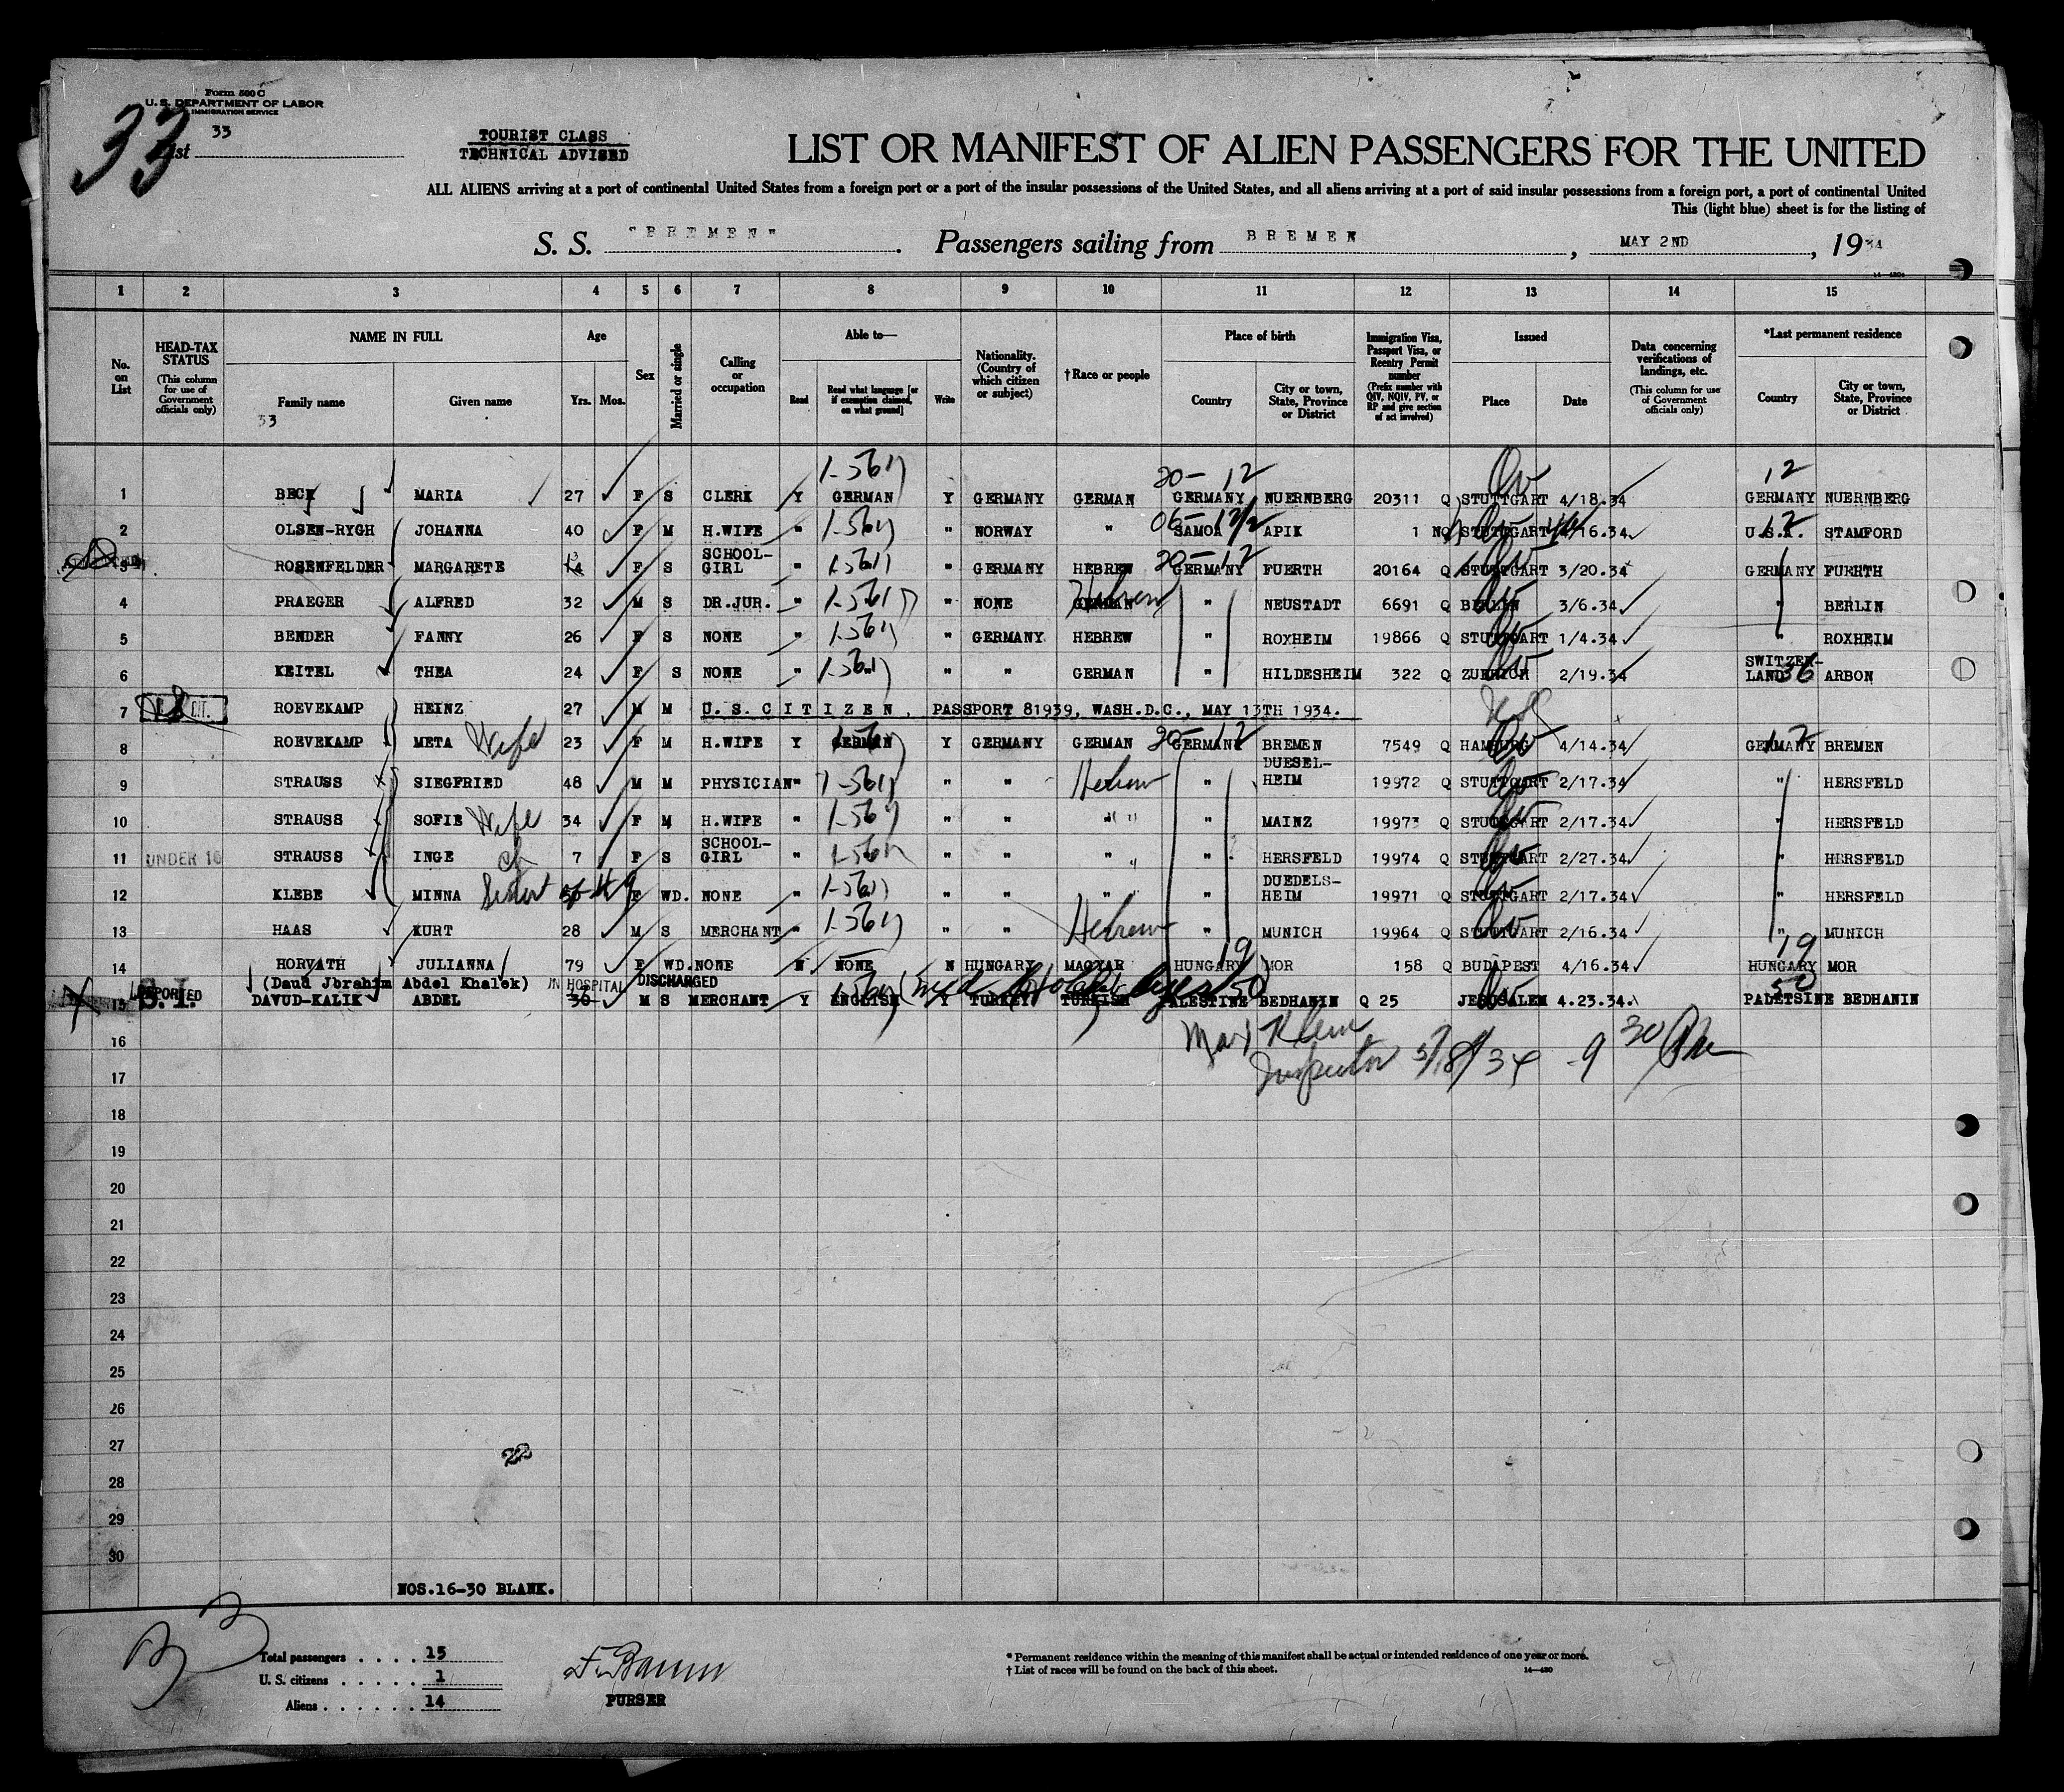 Form 500 C
U. S. DEPARTMENT OF LABOR
IMMIGRATION SERVICE
33
List 33
TOURIST CLASS
TECHNICAL ADVISED
LIST OR MANIFEST OF ALIEN PASSENGERS FOR THE UNITED
ALL ALIENS arriving at a port of continental United States from a foreign port or a port of the insular possessions of the United States, and all aliens arriving at a port of said insular possessions from a foreign port, a port of continental United
This (light blue) sheet is for the listing of
S. S. "BREMEN". Passengers sailing from BREMEN, MAY 2ND, 1934
1 2 3 4 5 6 7 8 9 10 11 12 13 14 15
No. on List
HEAD-TAX STATUS (This column for use of Government officials only)
NAME IN FULL Family name Given name
33
Age Yrs. Mos.
Sex
Married or single
Calling or occupation
Able to— Read Read what language [or if exemption claimed, on what ground] Write
Nationality. (Country of which citizen or subject)
†Race or people
Place of birth Country City or town, State, Province or District
Immigration Visa, Passport Visa, or Reentry Permit number (Prefix number with QIV, NQIV, PV, or RP and give section of act involved)
Issued Place Date
Data concerning verifications of landings, etc. (This column for use of Government officials only)
*Last permanent residence Country City or town, State, Province or District
20- 12 12
1 BECK MARIA 27 F S CLERK Y GERMAN Y GERMANY GERMAN GERMANY NUERNBERG 20311 Q STUTTGART 4/18.34 GERMANY NUERNBERG
2 OLSEN-RYGH JOHANNA 40 F M H.WIFE " " NORWAY " SAMOA APIK 1 NQ STUTTGART 4/16.34 U.S.A. 12 STAMFORD
3 ROSENFELDER MARGARETE 14 13 F S SCHOOL-GIRL " " GERMANY HEBREW 20-12 GERMANY FUERTH 20164 Q STUTTGART 3/20.34 GERMANY FUERTH
4 PRAEGER ALFRED 32 M S DR.JUR. " " NONE GERMAN Hebrew " NEUSTADT 6691 Q BERLIN 3/6.34 " BERLIN
5 BENDER FANNY 26 F S NONE " " GERMANY HEBREW " ROXHEIM 19866 Q STUTTGART 1/4.34 " ROXHEIM
6 KEITEL THEA 24 F S NONE " " " GERMAN " HILDESHEIM 322 Q ZUERICH 2/19.34 SWITZER-LAND 36 ARBON
7 ROEVEKAMP HEINZ 27 M M U.S.CITIZEN, PASSPORT 81939, WASH.D.C., MAY 13TH 1934.
8 ROEVEKAMP META Wife 23 F M H.WIFE Y GERMAN Y GERMANY GERMAN 20-12 GERMANY BREMEN 7549 Q HAMBURG 4/14.34 GERMANY 12 BREMEN
9 STRAUSS SIEGFRIED 48 M M PHYSICIAN " " " Hebrew " DUESEL-HEIM 19972 Q STUTTGART 2/17.34 " HERSFELD
10 STRAUSS SOFIE Wife 34 F M H.WIFE " " " " " MAINZ 19973 Q STUTTGART 2/17.34 " HERSFELD
11 UNDER 16 STRAUSS INGE ch 7 F S SCHOOL-GIRL " " " " " HERSFELD 19974 Q STUTTGART 2/27.34 " HERSFELD
12 KLEBE MINNA Sister 49 F WD. NONE " " " " " DUEDELS-HEIM 19971 Q STUTTGART 2/17.34 " HERSFELD
13 HAAS KURT 28 M S MERCHANT " " " Hebrew " MUNICH 19964 Q STUTTGART 2/16.34 " MUNICH
14 HORVATH JULIANNA 79 F WD. NONE N NONE N HUNGARY MAGYAR HUNGARY 19 MOR 158 Q BUDAPEST 4/16.34 HUNGARY 19 MOR
(Daud Jbrahim Abdel Khalek) IN HOSPITAL DISCHARGED
15 DEPORTED S.I. DAVUD-KALIK ABDEL 30 M S MERCHANT Y ENGLISH Y TURKEY TURKISH PALESTINE 50 BEDHANIN Q 25 JERUSALEM 4.23.34. PALETSINE 50 BEDHANIN
16
Inspector 5/8/34 - 9 30 Pm
17
18
19
20
21
22
23
24
25
26
27
28
29
30
NOS.16-30 BLANK.
33
Total passengers .... 15
U. S. citizens ..... 1
Aliens ...... 14
PURSER
* Permanent residence within the meaning of this manifest shall be actual or intended residence of one year or more.
† List of races will be found on the back of this sheet.